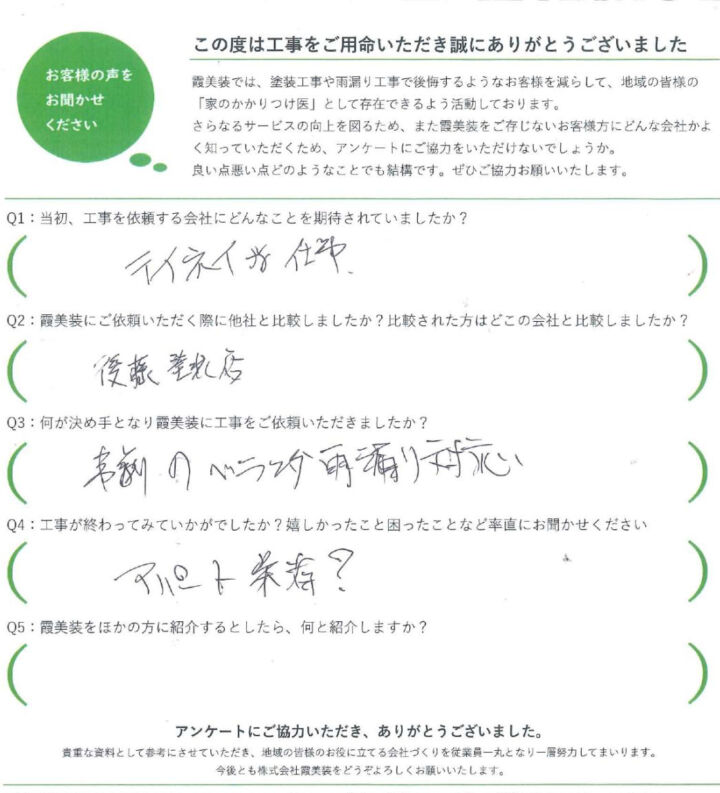 お客様の声を
お聞かせ
ください
この度は工事をご用命いただき誠にありがとうございました
霞美装では、塗装工事や雨漏り工事で後悔するようなお客様を減らして、地域の皆様の
「家のかかりつけ医」として存在できるよう活動しております。
さらなるサービスの向上を図るため、また霞美装をご存じないお客様方にどんな会社かよ
く知っていただくため、アンケートにご協力をいただけないでしょうか。
良い点悪い点どのようなことでも結構です。ぜひご協力お願いいたします。
Q1：当初、工事を依頼する会社にどんなことを期待されていましたか？
テイネイな仕事
Q2：霞美装にご依頼いただく際に他社と比較しましたか？比較された方はどこの会社と比較しましたか？
後藤塗装店
Q3：何が決め手となり霞美装に工事をご依頼いただきましたか？
のベランダ雨漏り対応
Q4：工事が終わってみていかがでしたか？嬉しかったこと困ったことなど率直にお聞かせください
？
Q5：霞美装をほかの方に紹介するとしたら、何と紹介しますか？
アンケートにご協力いただき、ありがとうございました。
貴重な資料として参考にさせていただき、地域の皆様のお役に立てる会社づくりを従業員一丸となり一層努力してまいります。
今後とも株式会社霞美装をどうぞよろしくお願いいたします。